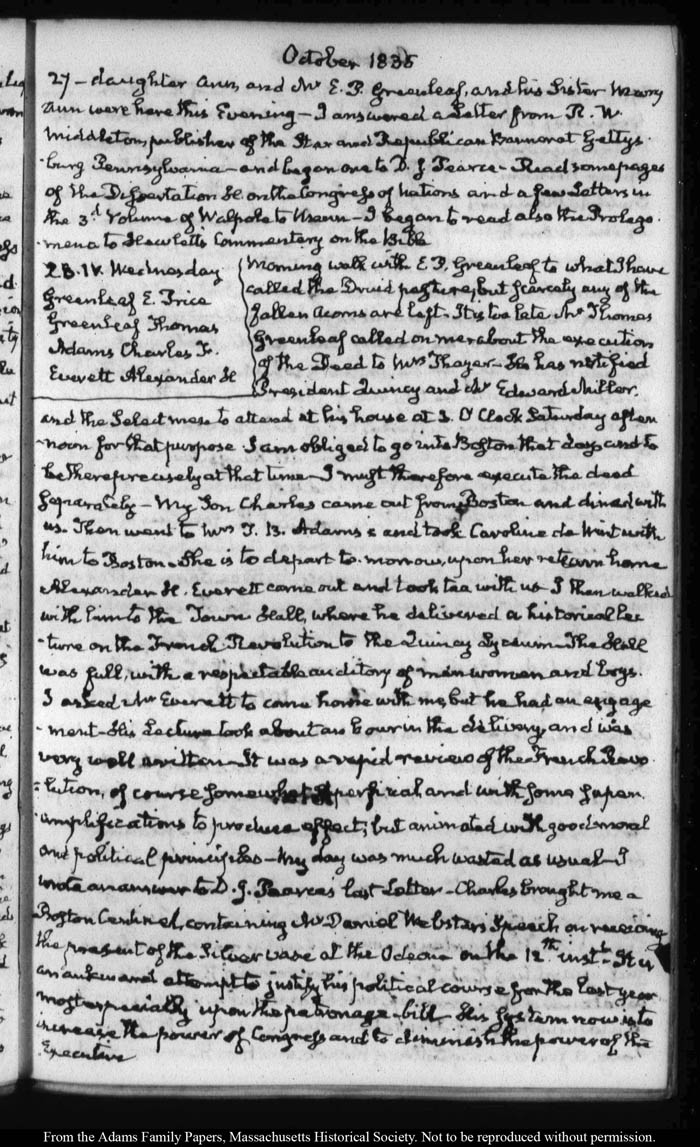 October 1835
27 – daughter Ann, and Mr E. P. Greenleaf, and his Sister Mary
Ann were here this Evening – I answered a Letter from R. W.
Middleton, publisher of the Star and Republican Banner at Gettys-
-burg Pennsylvania – and began one to D. J. Pearce – Read some pages
of the Dissertation on the Congress of Nations and a few Letters in
the 3d. Volume of Walpole to Mann – I began to read also the Prolego-
-mena to Hewlett's Commentary on the Bible
28. IV. Wednesday
Greenleaf E. Price
Greenleaf Thomas
Adams Charles F.
Everett Alexander H
Morning walk with E. P. Greenleaf to what I have
called the Druid pasture, but scarcely any of the
fallen acorns are left. It is too late. Mr Thomas
Greenleaf called on me about the execution
of the Deed to Mrs Thayer – He has notified
President Quincy and Mr Edward Miller.
and the Select men to attend at his house at 3. O'Clock Saturday after-
-noon for that purpose I am obliged to go into Boston that day and to
be there precisely at that time – I must therefore execute the deed
separately – My Son Charles came out from Boston and dined with
us. Then went to Mrs T. B. Adams's and took Caroline de Wint with
him to Boston – She is to depart to-morrow, upon her return home
Alexander H. Everett came out and took tea with us I then walked
with him to the Town Hall, where he delivered a historical Lec-
-ture on the French Revolution to the Quincy Lyceum – The Hall
was full, with a respectable auditory of men women and boys.
I asked Mr Everett to come home with me, but he had an engage-
-ment – His Lecture took about an hour in the delivery, and was
very well written – It was a rapid review of the French Revo-
-lution, of course somewhat superficial, and with some
amplifications to produce effect; but animated with good moral
and political principles – My day was much wasted as usual – I
wrote an answer to D. J. Pearce's last Letter – Charles brought me a
Boston Centinel, containing Mr Daniel Webster's Speech on receiving
the present of the Silver vase at the Odeon on the 12th. inst. – It is
an awkward attempt to justify his political course for the last year
most especially upon the patronage-bill – His System now is to
increase the power of Congress and to diminish the power of the
Executive
From the Adams Family Papers, Massachusetts Historical Society. Not to be reproduced without permission.